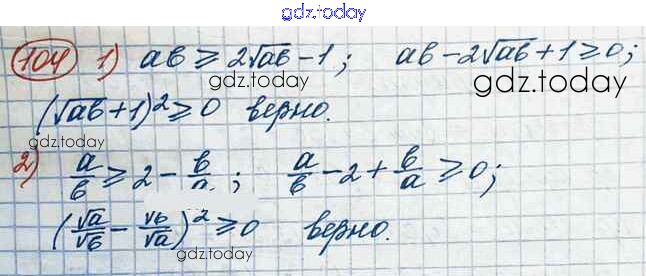 gdz.today
104 1) ab ≥ 2√ab - 1; ab - 2√ab + 1 ≥ 0;
gdz.today gdz.today
(√ab + 1)² ≥ 0 верно.
gdz.today
2) a/b ≥ 2 - b/a; a/b - 2 + b/a ≥ 0;
gdz.today
(√a/√b - √b/√a)² ≥ 0 верно.
gdz.today gdz.today